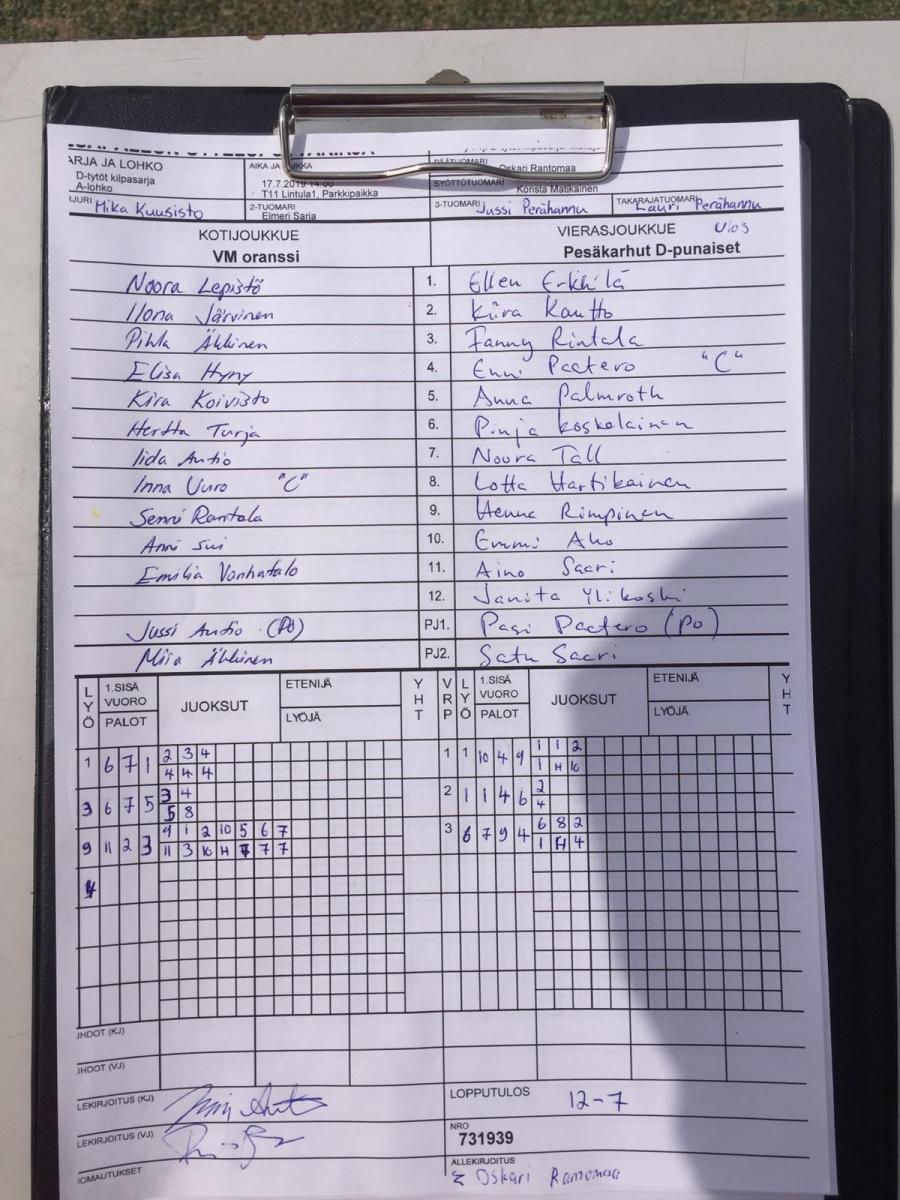 ARJA JA LOHKO
D-tytöt kilpasarja
A-lohko
AIKA JA
17.7.2019 14:00
T11 Lintula1, Parkkipaikka
Oskari Rantomaa
SYÖTTÖTUOMARI
Konsta Matikainen
JURI Mika Kuusisto
2-TUOMARI
Elmeri Saria
3-TUOMARI Jussi Perähannu
TAKARAJATUOMARI Lauri Perähannu
KOTIJOUKKUE
VM oranssi
VIERASJOUKKUE
Pesäkarhut D-punaiset
Noora Lepistö 1. Ellen Erkkilä
Ilona Järvinen 2. Kiira Kautto
Pihla Äkkinen 3. Fanny Rintala
Elisa Hyny 4. Enni Paatero "C"
Kira Koivisto 5. Anna Palmroth
Hertta Turja 6. Pinja Koskelainen
Iida Autio 7. Noora Tall
Inna Uuro "C" 8. Lotta Hartikainen
Senni Rantala 9. Henna Rimpinen
Anni Sui 10. Emmi Aho
Emilia Vanhatalo 11. Aino Saari
12. Janita Ylikoski
Jussi Autio (PÖ) PJ1. Pasi Paatero (PÖ)
Miia Äkkinen PJ2. Satu Saari
LYÖ 1.SISÄ VUORO PALOT JUOKSUT ETENIJÄ LYÖJÄ YHT VRP LYÖ 1.SISÄ VUORO PALOT JUOKSUT ETENIJÄ LYÖJÄ YHT
1 6 7 1 2 3 4 1 1 10 4 9 1 1 2
4 4 4 1 H 10
3 6 7 5 3 4 2 1 1 4 6 2
5 8 4
9 11 2 3 9 1 2 10 5 6 7 3 6 7 9 4 6 8 2
11 3 10 H 7 7 7 1 H 4
4
JHDOT (KJ)
JHDOT (VJ)
LEKIRJOITUS (KJ)
LOPPUTULOS 12-7
LEKIRJOITUS (VJ)
NRO
731939
IOMAUTUKSET
ALLEKIRJOITUS
Oskari Rantomaa